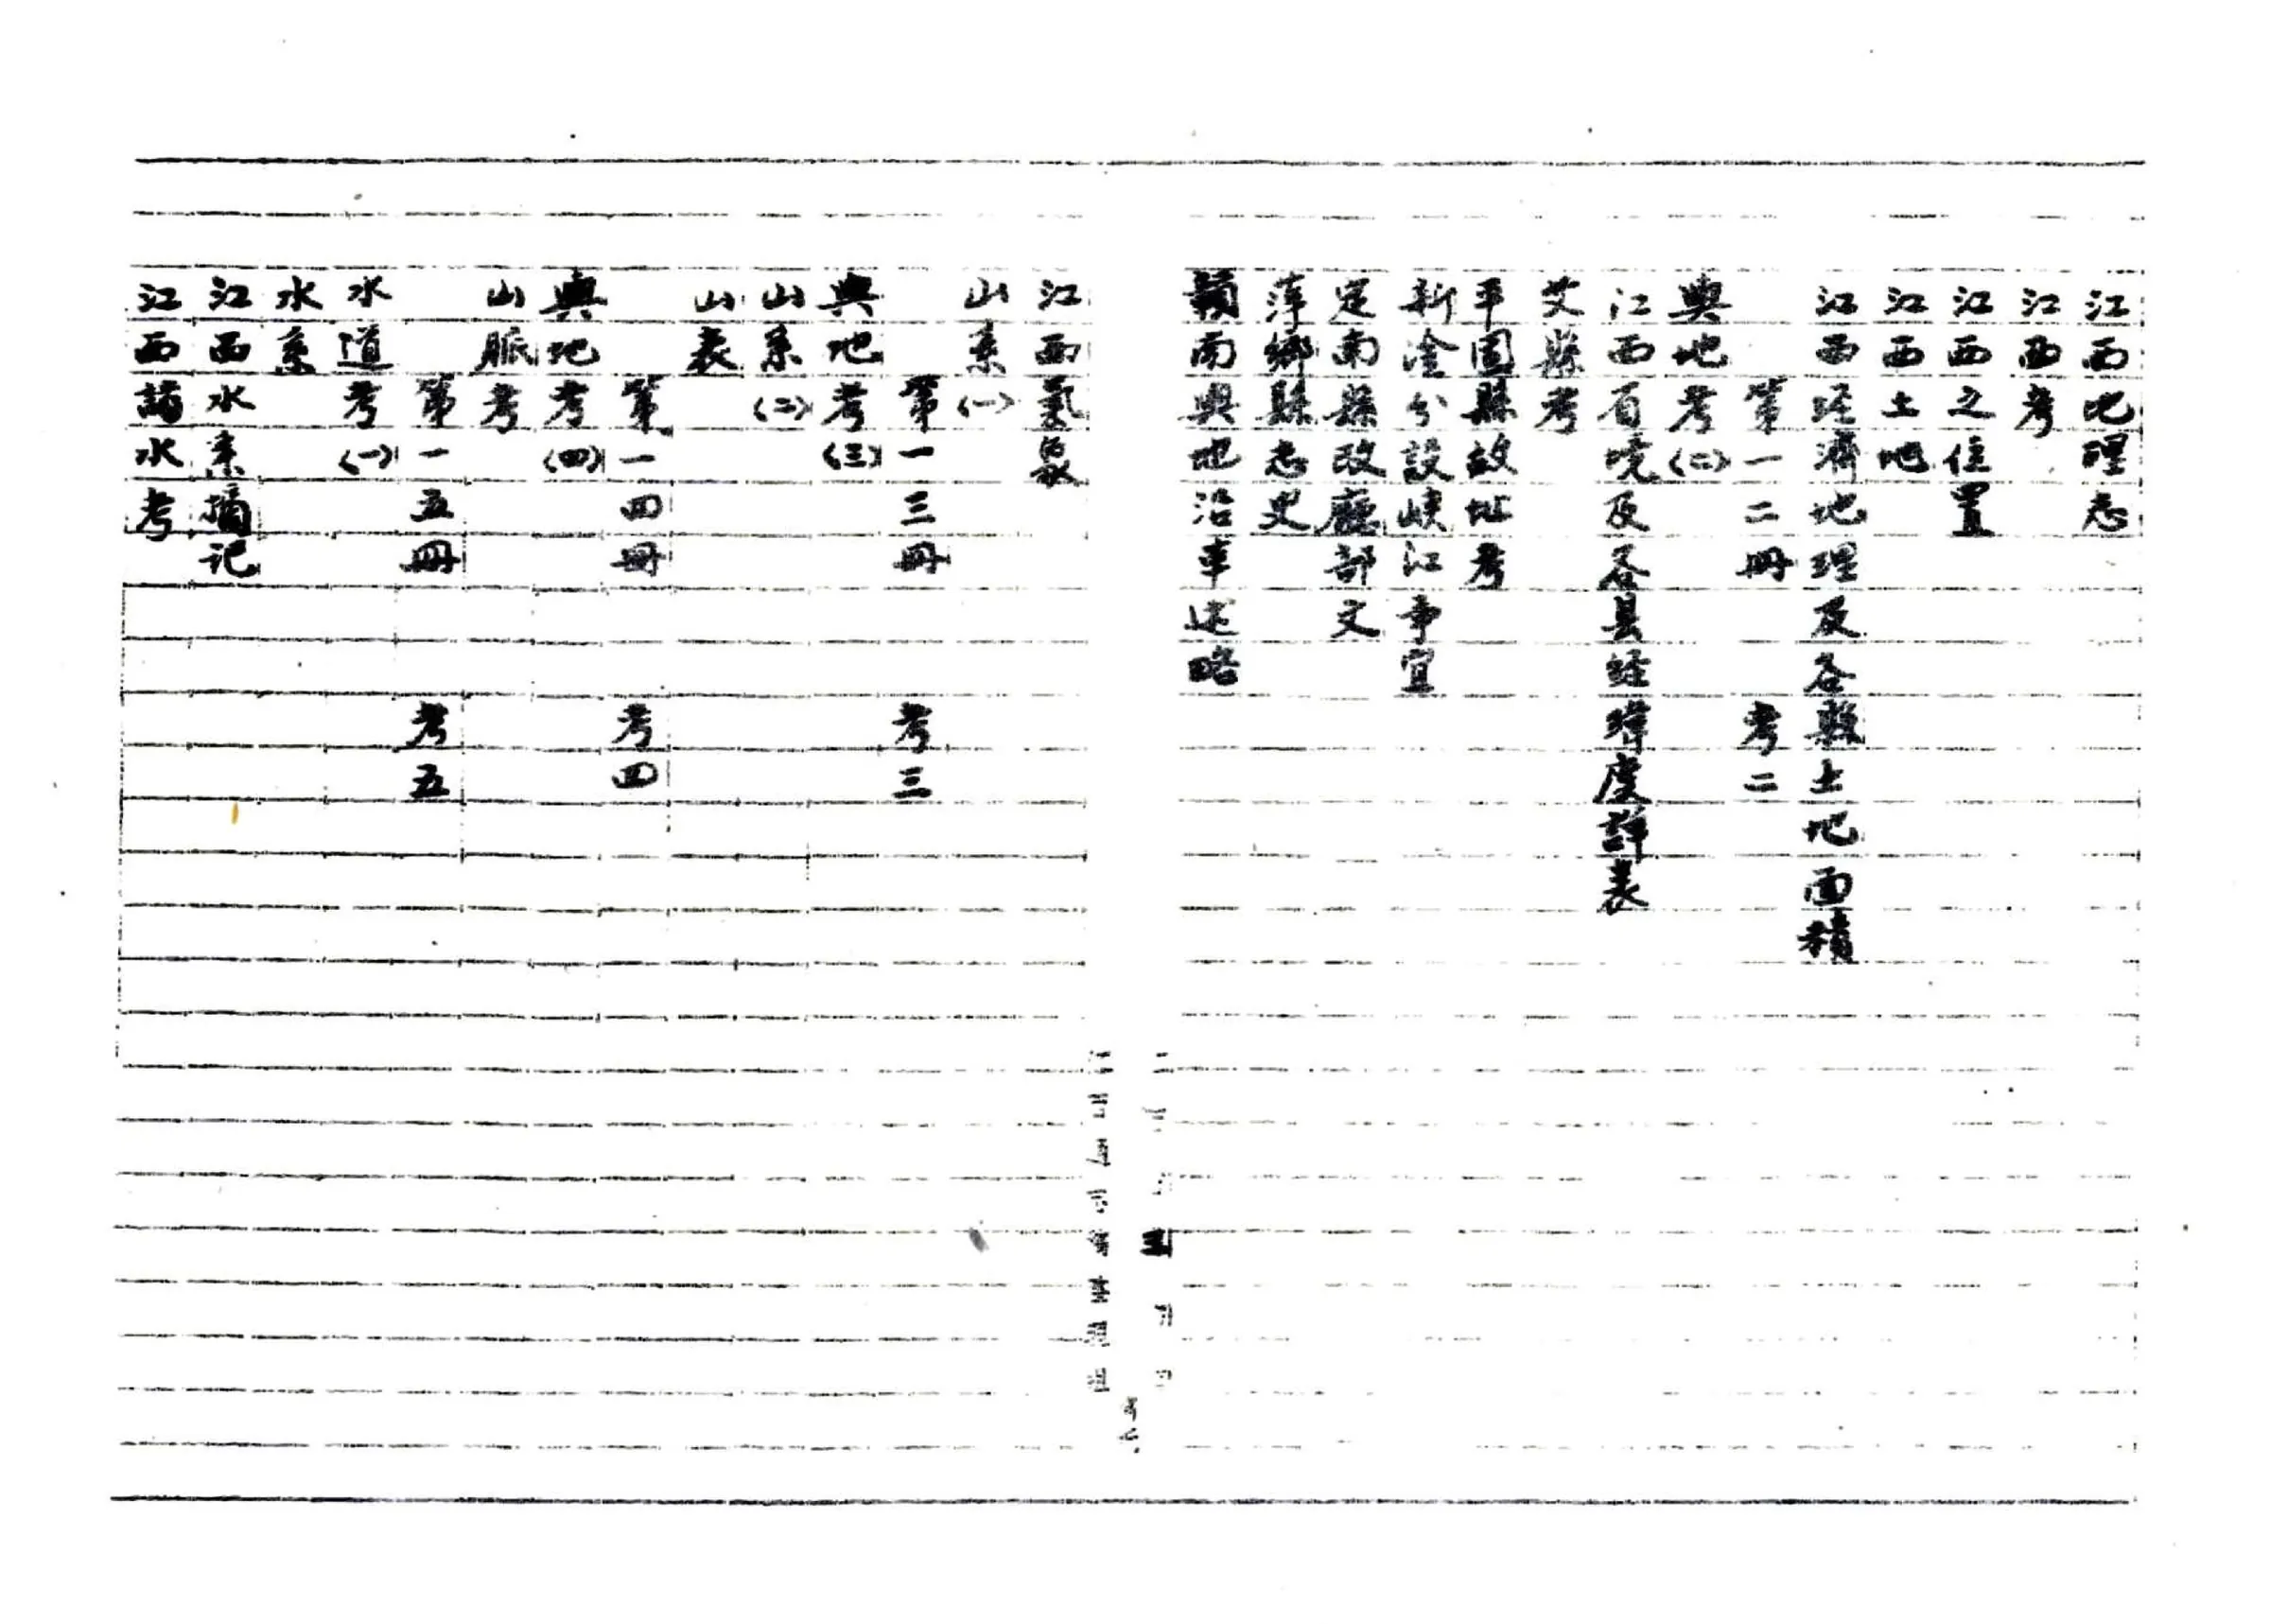 江西地理志
江西考
江西之位置
江西土地
江西经濟地理及各縣土地面積
第一二冊 考二
輿地考(二)
江西省境及各县经緯度詳表
艾縣考
平固縣故址考
新淦分設峡江事宜
定南縣改廳部文
萍鄉縣志史
贛南輿地沿革述略
江西氣象
山系(一)
第一三冊 考三
輿地考(三)
山系(二)
山表
第一四冊 考四
輿地考(四)
山脈考
第一五冊 考五
水道考(一)
水系
江西水系摘记
江西諸水考